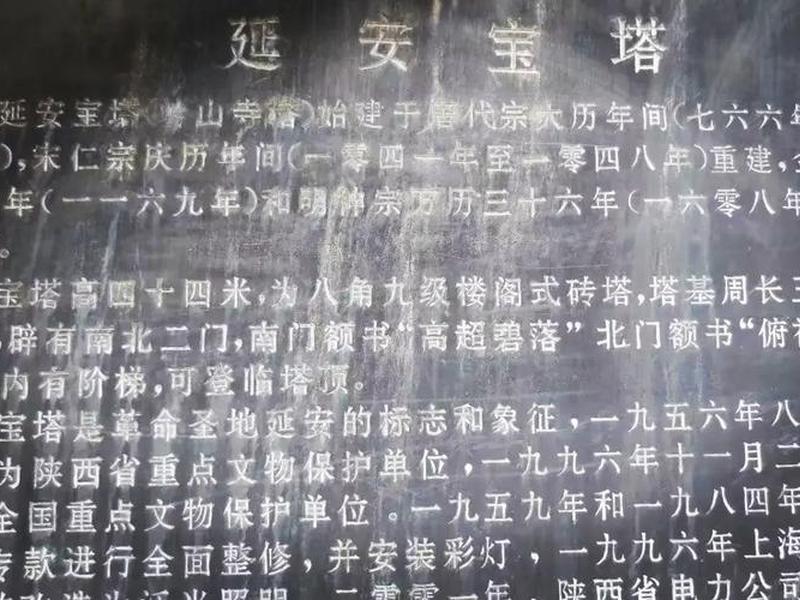 延安宝塔
延安宝塔(山寺塔)始建于唐代宗大历年间(七六六年
),宋仁宗庆历年间(一零四一年至一零四八年)重建,金
年(一一六九年)和明神宗万历三十六年(一六零八年
。
宝塔高四十四米,为八角九级楼阁式砖塔,塔基周长三
辟有南北二门,南门额书“高超碧落”北门额书“俯视
内有阶梯,可登临塔顶。
宝塔是革命圣地延安的标志和象征,一九五六年八
为陕西省重点文物保护单位,一九九六年十一月二
全国重点文物保护单位。一九五九年和一九八四年
专款进行全面整修,并安装彩灯,一九九六年上海
改造为泛光照明。二零零一年,陕西省电力公司